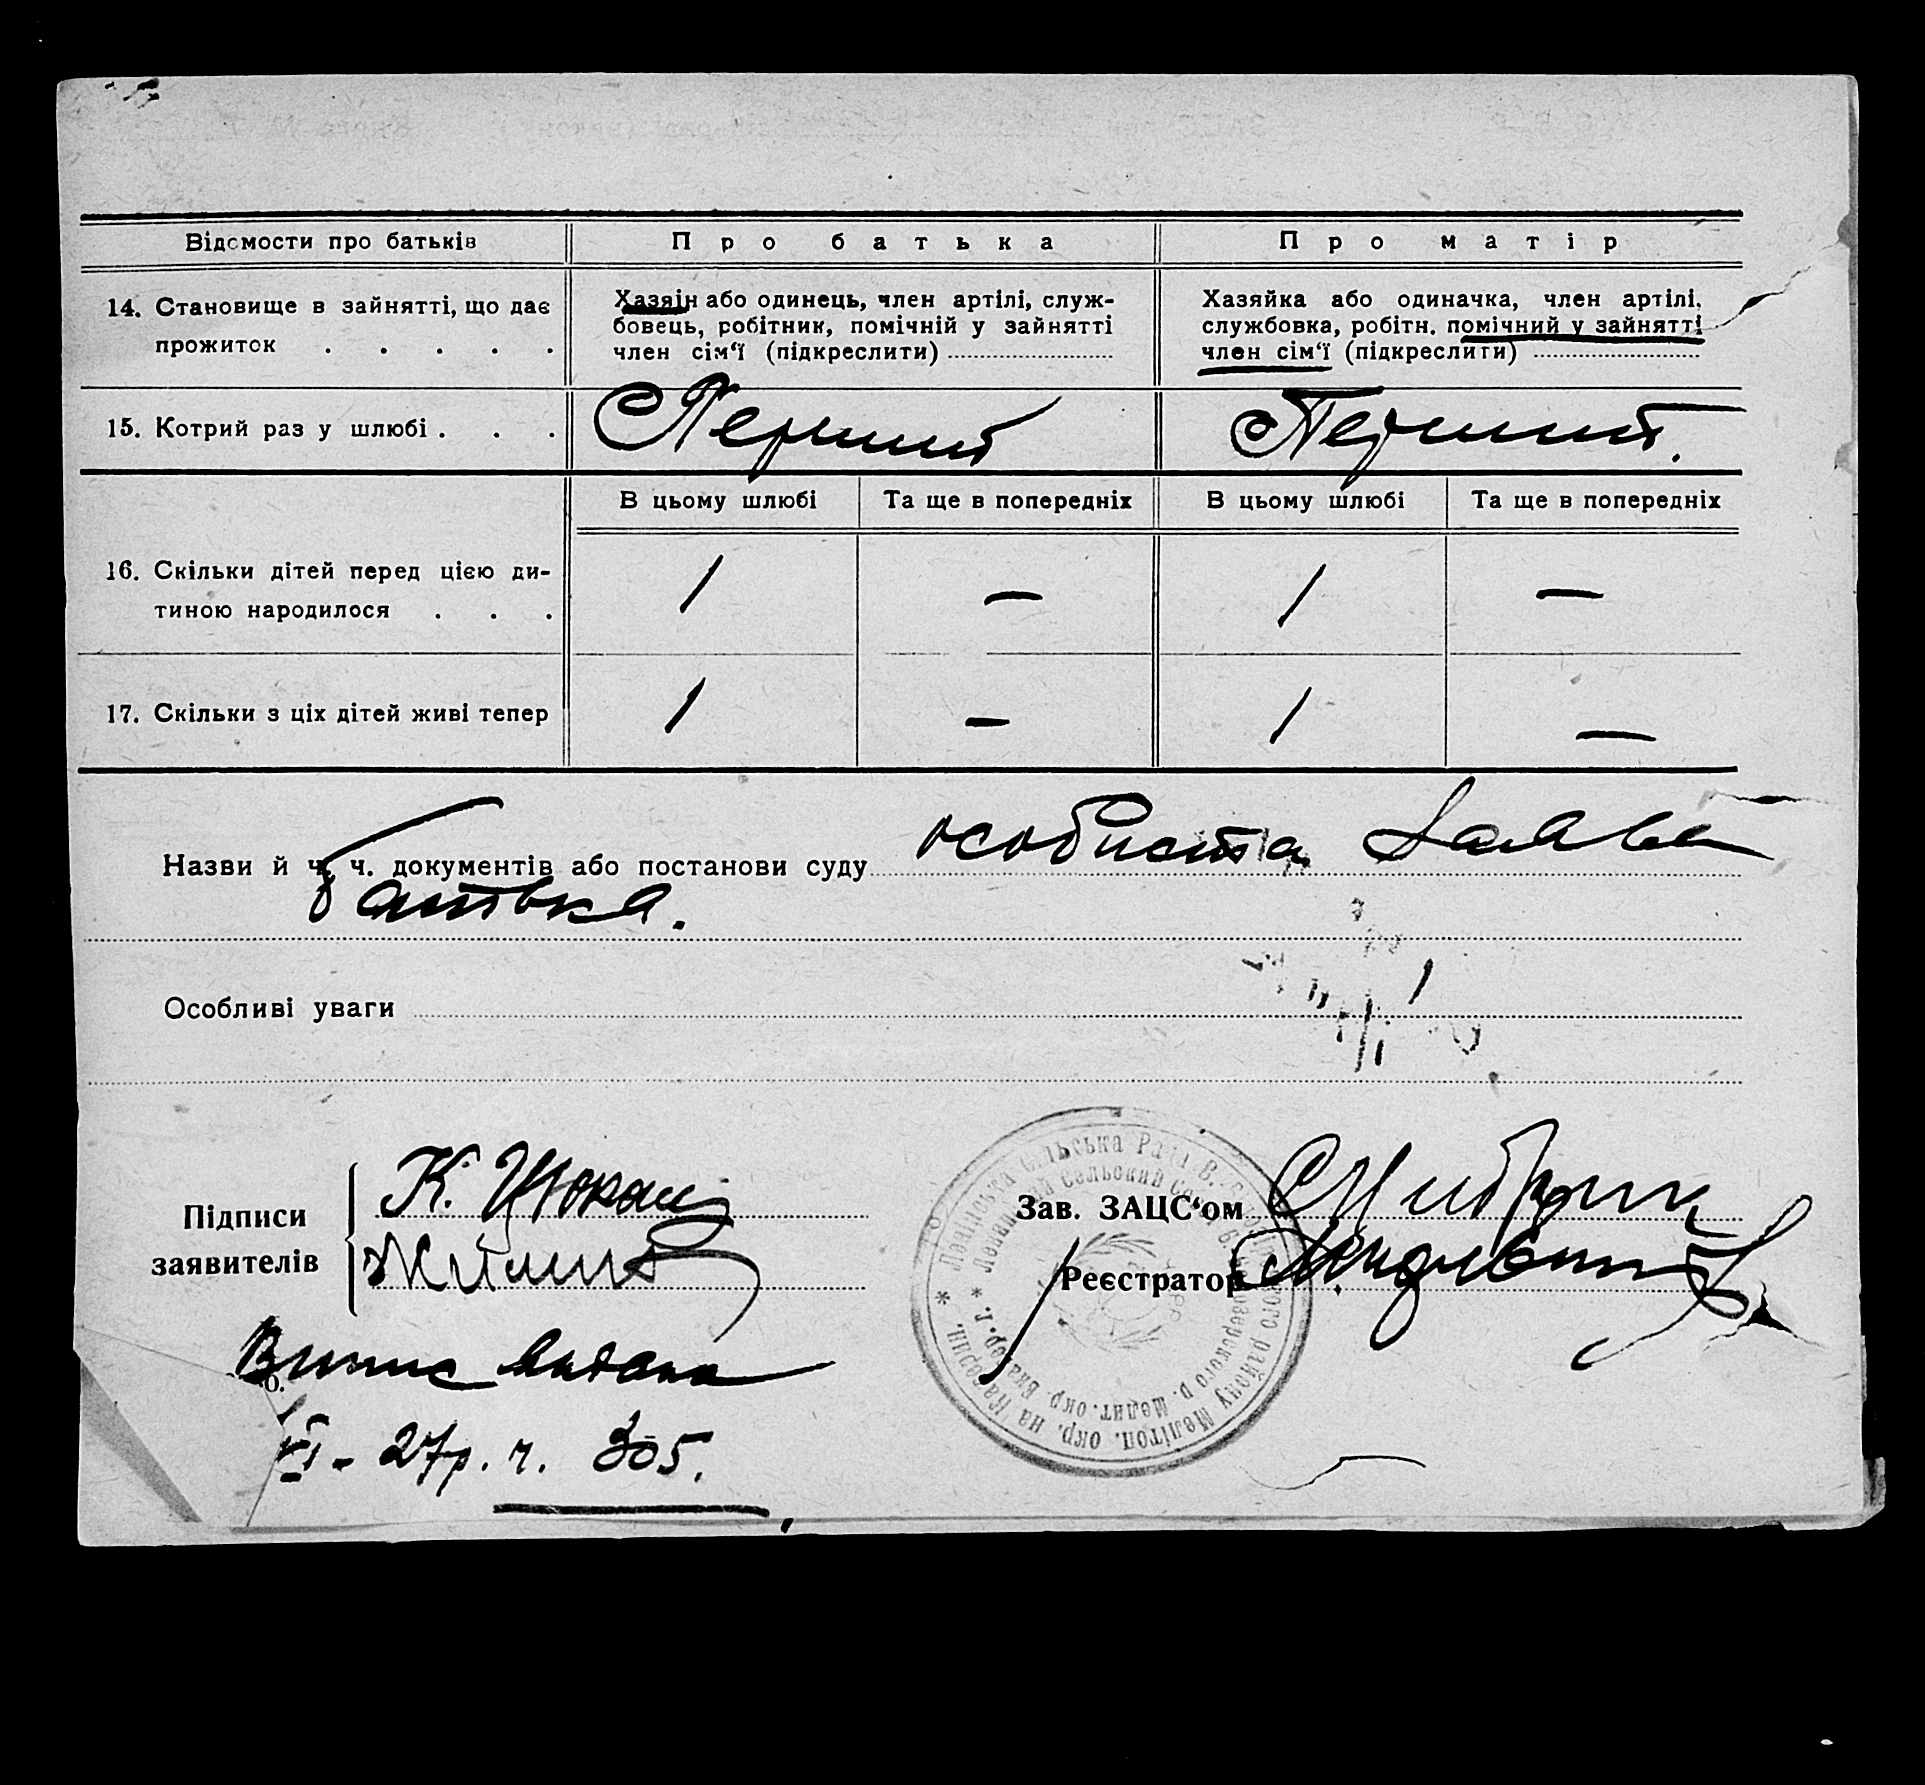 Відомости про батьків
Про батька
Про матір
14. Становище в зайнятті, що дає
прожиток . . . . .
Хазяїн або одинець, член артілі, служ-
бовець, робітник, помічній у зайнятті
член сім‘ї (підкреслити)
Хазяйка або одиначка, член артілі,
службовка, робітн. помічний у зайнятті
член сім‘ї (підкреслити)
15. Котрий раз у шлюбі . . .
Перший
Перший.
В цьому шлюбі
Та ще в попередніх
В цьому шлюбі
Та ще в попередніх
16. Скільки дітей перед цією ди-
тиною народилося . . .
1
—
1
—
17. Скільки з ціх дітей живі тепер
1
—
1
—
Назви й ч. ч. документів або постанови суду особиста заява
батька.
Особливі уваги
Підписи
заявителів
К.
Зав. ЗАЦС‘ом
Реєстратор
Ленінська Сільська Рада
Випис видана
VI - 27р. ч. 305.